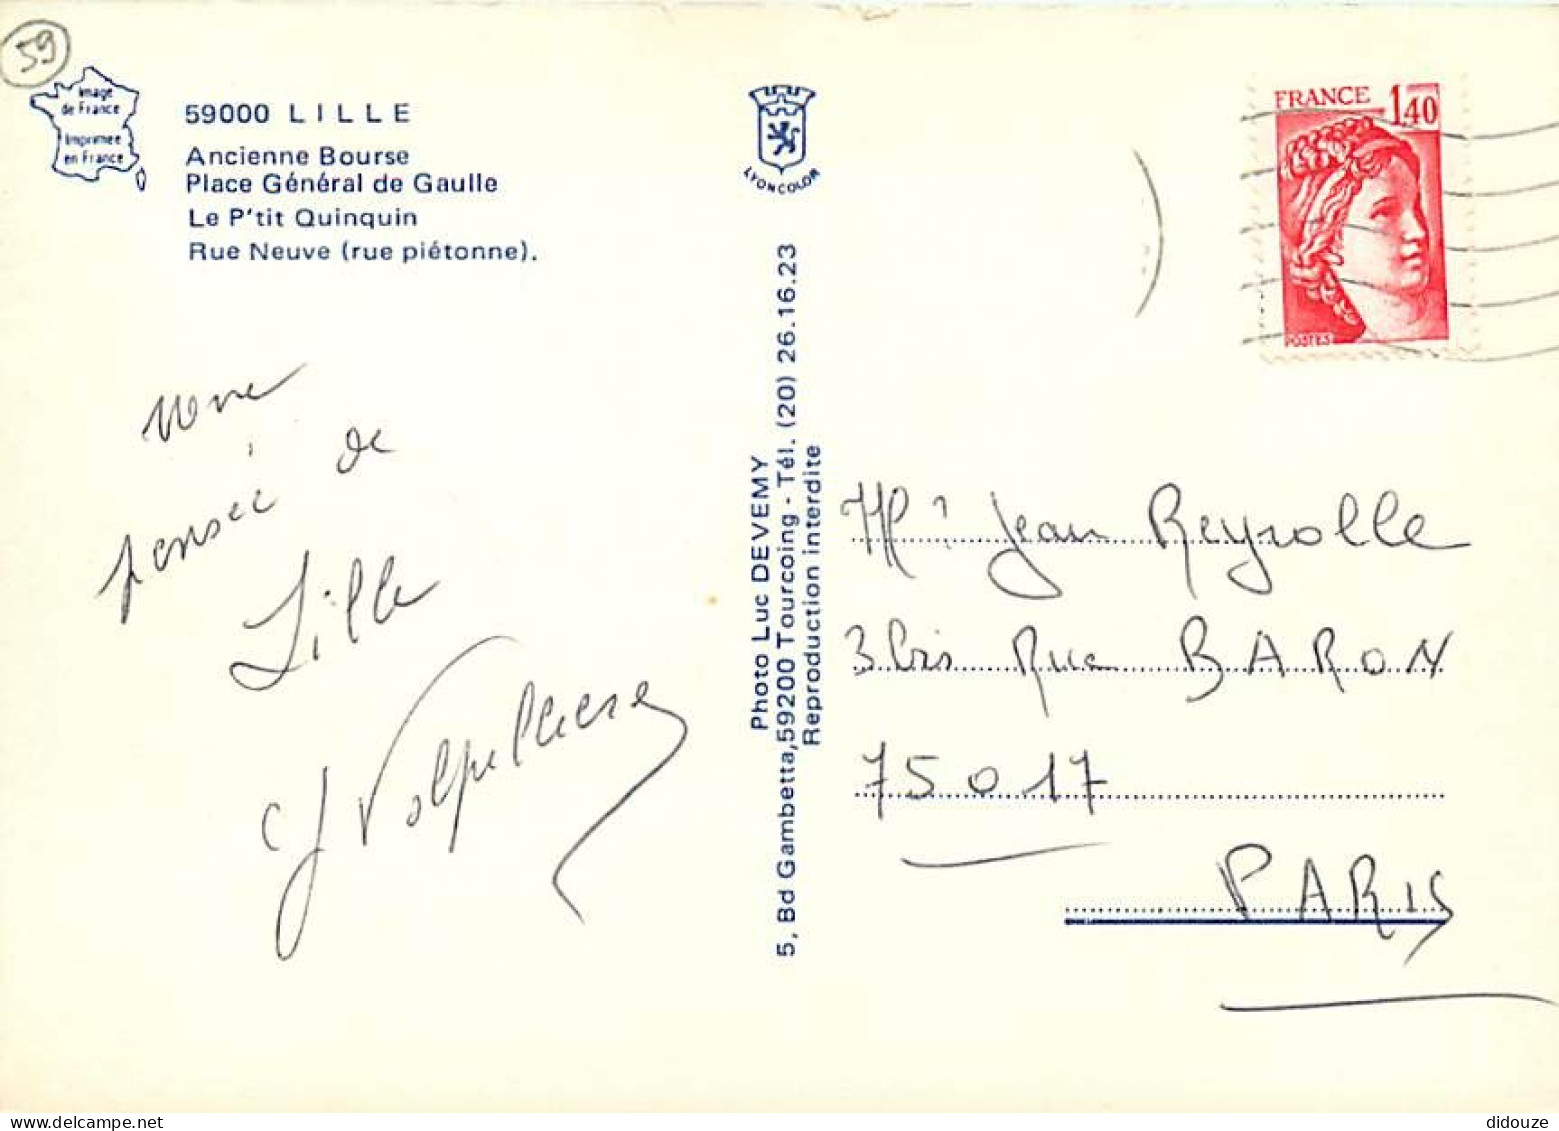 59
Image
de France
Imprimée
en France
59000 LILLE
Ancienne Bourse
Place Général de Gaulle
Le P'tit Quinquin
Rue Neuve (rue piétonne).
LYONCOLOR
FRANCE 1,40
POSTES
pensée de
Lille
Photo Luc DEVEMY
5, Bd Gambetta, 59200 Tourcoing - Tél. (20) 26.16.23
Reproduction interdite
Mr Jean Reyrolle
3 bis Rue BARON
75017
PARIS
didouze